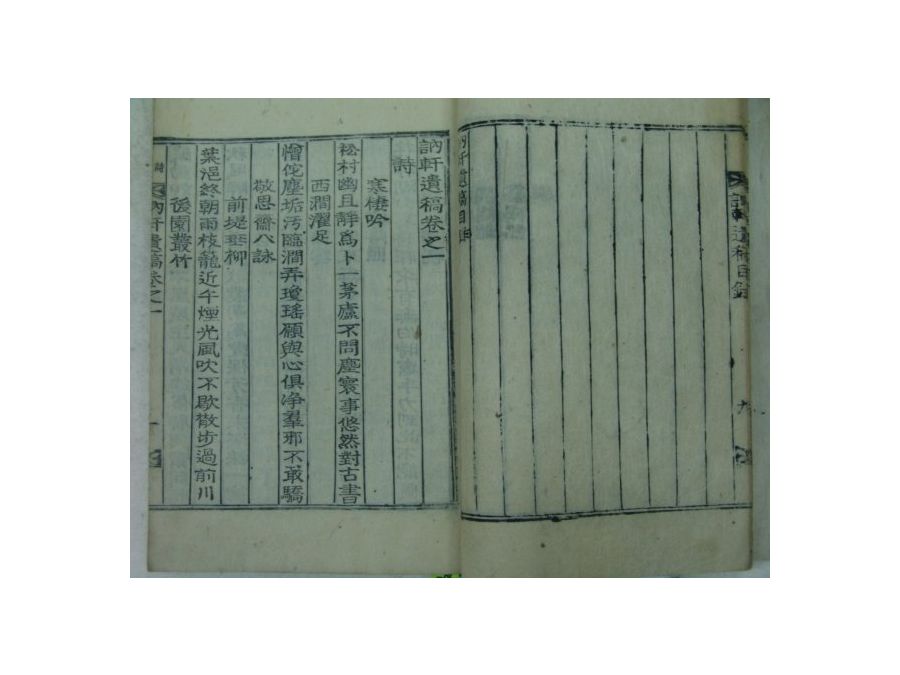 遺稿目錄
訥軒遺稿卷之一
詩
寒棲吟
松村幽且静爲卜一茅廬不問塵寰事悠然對古書
西澗濯足
憎佗塵垢汚臨澗弄瓊瑤願與心俱净羣邪不敢驕
敬思齋八詠
前堤垂柳
葉浥終朝雨枝籠近午煙光風吹不歇散步過前川
後園叢竹
詩
訥軒遺稿卷之一
一